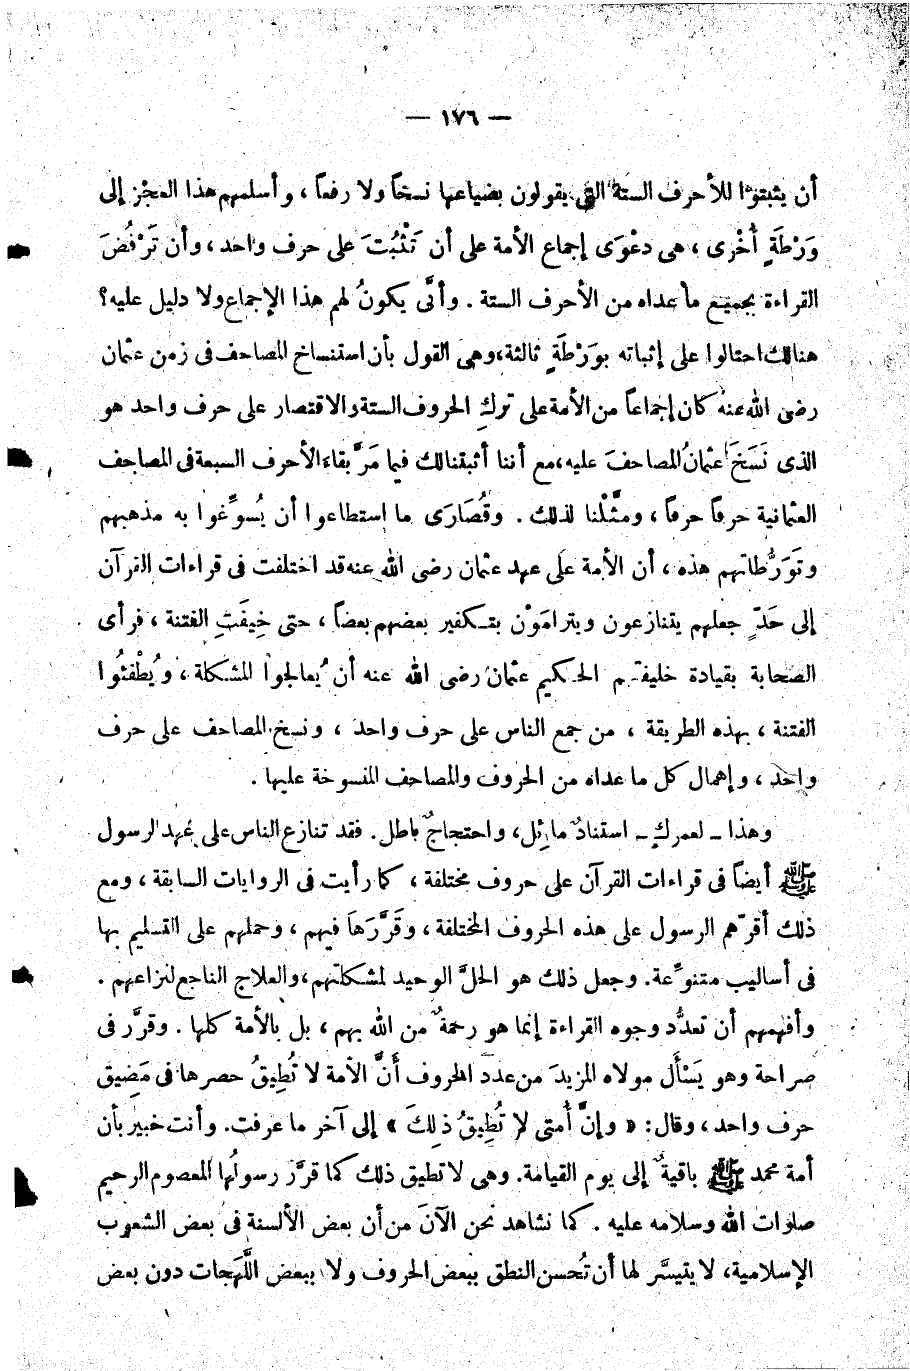 — ١٧٦ —
أن يثبتوا للأحرف الستة التي يقولون بضياعها نسخاً ولا رفعاً ، وأسلمهم هذا العجْز إلى
وَرْطَةٍ أُخْرى ، هى دعْوَى إجماع الأمة على أن تَثْبُتَ على حرف واحد ، وأن تَرْفُضَ
القراءة بجميع ما عداه من الأحرف الستة . وأنَّى يكونُ لهم هذا الإجماع ولا دليل عليه؟
هنالك احتالوا على إثباته بوَرْطَةٍ ثالثة، وهى القول بأن استنساخ المصاحف فى زمن عثمان
رضى الله عنه كان إجماعاً من الأمة على تركِ الحروف الستة والاقتصار على حرف واحد هو
الذى نَسَخَ عثمانُ المصاحفَ عليه، مع أننا أثبتنا لك فيما مَرَّ بقاء الأحرف السبعة فى المصاحف
العثمانية حرفاً حرفاً ، ومثَّلْنا لذلك . وقُصَارَى ما استطاعوا أن يُسوِّغوا به مذهبهم
وتَوَرُّطاتهم هذه ، أن الأمة على عهد عثمان رضى الله عنه قد اختلفت فى قراءات القرآن
إلى حَدّ جعلهم يتنازعون ويترامَوْن بتكفير بعضهم بعضاً ، حتى خِيفَتِ الفتنة ، فرأى
الصحابة بقيادة خليفتهم الحكيم عثمان رضى الله عنه أن يُعالجوا المشكلة ، ويُطْفئُوا
الفتنة ، بهذه الطريقة ، من جمع الناس على حرف واحد ، ونسخ المصاحف على حرف
واحد ، وإهمال كل ما عداه من الحروف والمصاحف المنسوخة عليها .
وهذا ــ لعمرك ــ استنادٌ مائل، واحتجاجٌ باطل. فقد تنازع الناس على عهد الرسول
ﷺ أيضاً فى قراءات القرآن على حروف مختلفة ، كما رأيت فى الروايات السابقة ، ومع
ذلك أقرّهم الرسول على هذه الحروف المختلفة ، وقَرَّرَها فيهم ، وحملهم على التسليم بها
فى أساليب متنوِّعة. وجعل ذلك هو الحلَّ الوحيد لمشكلتهم، والعلاج الناجع لنزاعهم .
وأفهمهم أن تعدُّد وجوه القراءة إنما هو رحمةٌ من الله بهم ، بل بالأمة كلها . وقرَّر فى
صراحة وهو يَسْأَل مولاه المزيدَ من عدد الحروف أَنَّ الأمة لا تُطِيقُ حصرها فى مَضِيق
حرف واحد ، وقال : « وإنَّ أُمتى لا تُطِيقُ ذلِكَ » إلى آخر ما عرفت. وأنت خبير بأن
أمة محمد ﷺ باقيةٌ إلى يوم القيامة. وهى لا تطيق ذلك كما قرَّر رسولُها المعصوم الرحيم
صلوات الله وسلامه عليه . كما نشاهد نحن الآنَ من أن بعض الألسنة فى بعض الشعوب
الإسلامية، لا يتيسَّر لها أن تُحسن النطق ببعض الحروف ولا ببعض اللَّهَجات دون بعض